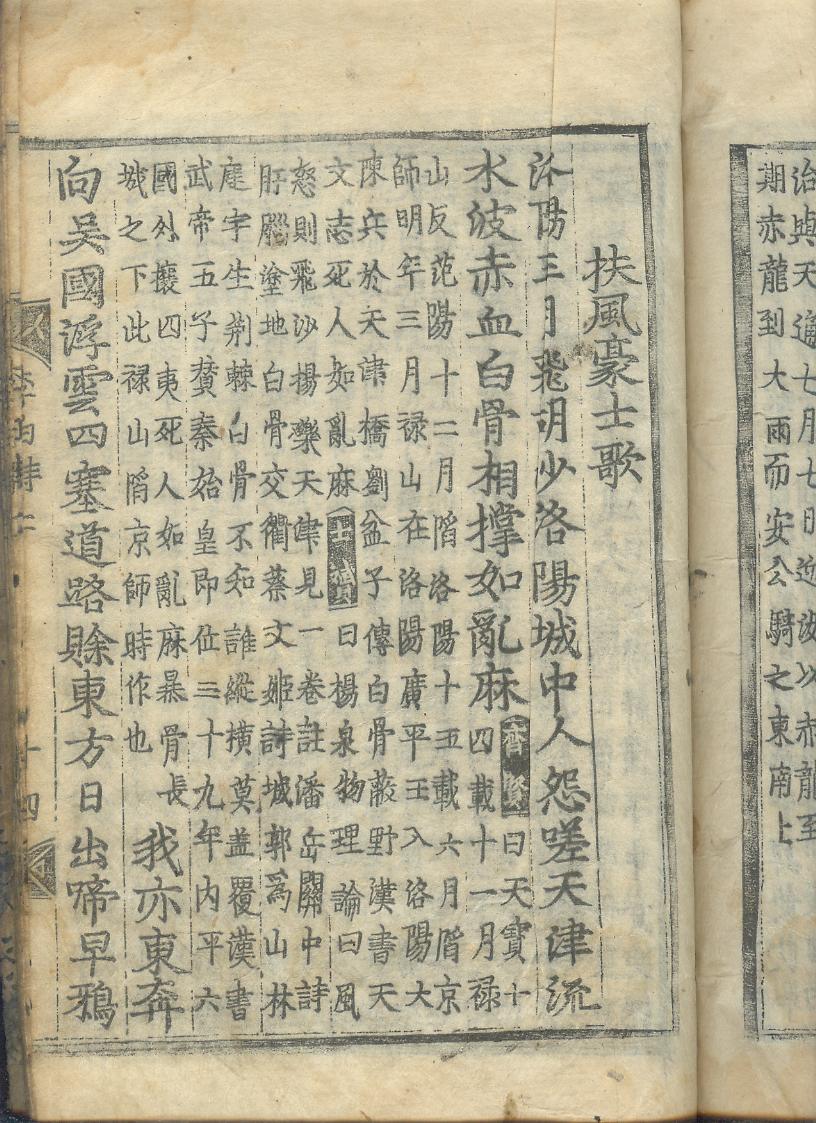 治與天通七月七日迎汝以赤龍至
期赤龍到大雨而安公騎之東南上
扶風豪士歌
洛陽三月飛胡沙洛陽城中人怨嗟天津流
水波赤血白骨相撑如亂麻
齊賢曰天寶十
四載十一月禄
山反范陽十二月陷洛陽十五載六月陷京
師明年三月禄山在洛陽廣平王入洛陽大
陳兵於天津橋劉盆子傳白骨蔽野漢書天
文志死人如亂麻士贇曰楊泉物理論曰風
怒則飛沙揚礫天津見一卷註潘岳關中詩
肝腦塗地白骨交衢蔡文姬詩城郭爲山林
庭宇生荆棘白骨不知誰縱橫莫盖覆漢書
武帝五子贊秦始皇即位三十九年內平六
國外攘四夷死人如亂麻暴骨長
城之下此禄山陷京師時作也
我亦東奔
向吳國浮雲四塞道路賖東方日出啼早鴉
李白詩二
十四